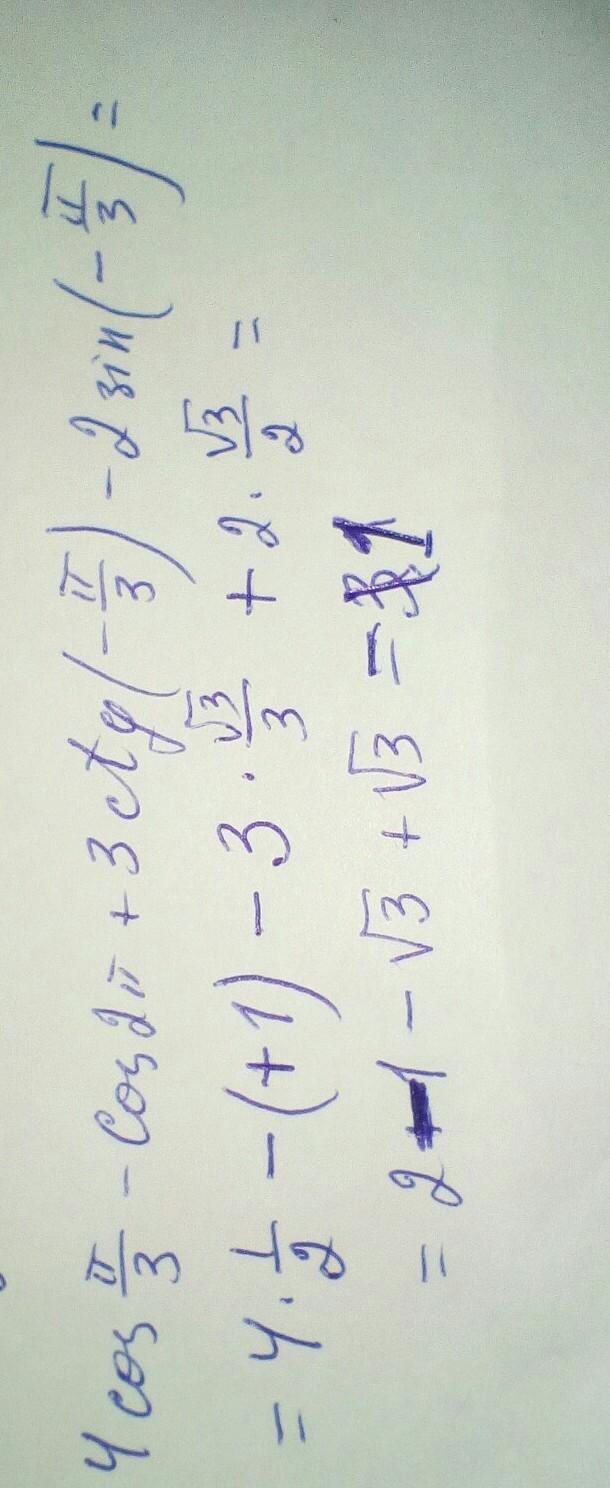 4 cos π/3 - cos 2π + 3 ctg(-π/3) - 2 sin(-π/3) =
= 4 · 1/2 - (+1) - 3 · √3/3 + 2 · √3/2 =
= 2 - 1 - √3 + √3 = 1